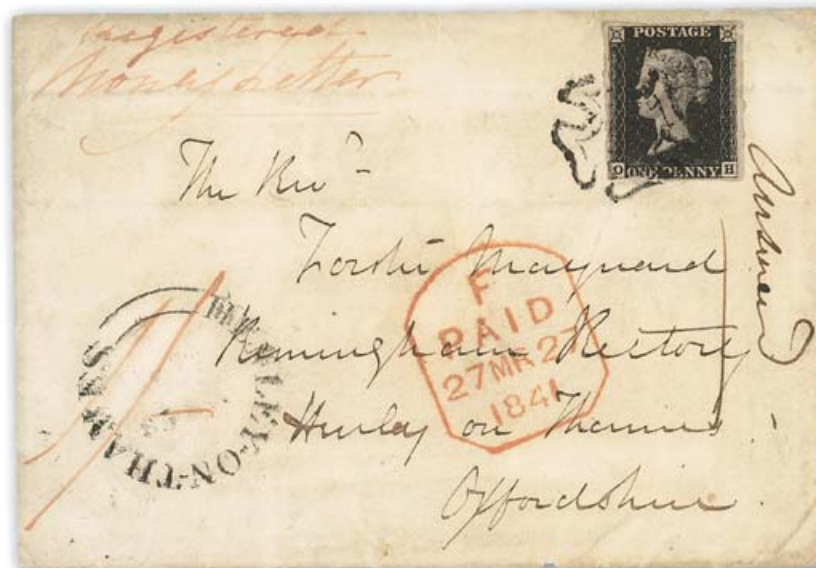 Registered
Money Letter
POSTAGE
O ONE PENNY H
The Revd
Forster Maynard
Remingham Rectory
Henley on Thames
Oxfordshire
Answered
F
PAID
27MR27
1841
HENLEY-ON-THAMES
1/-